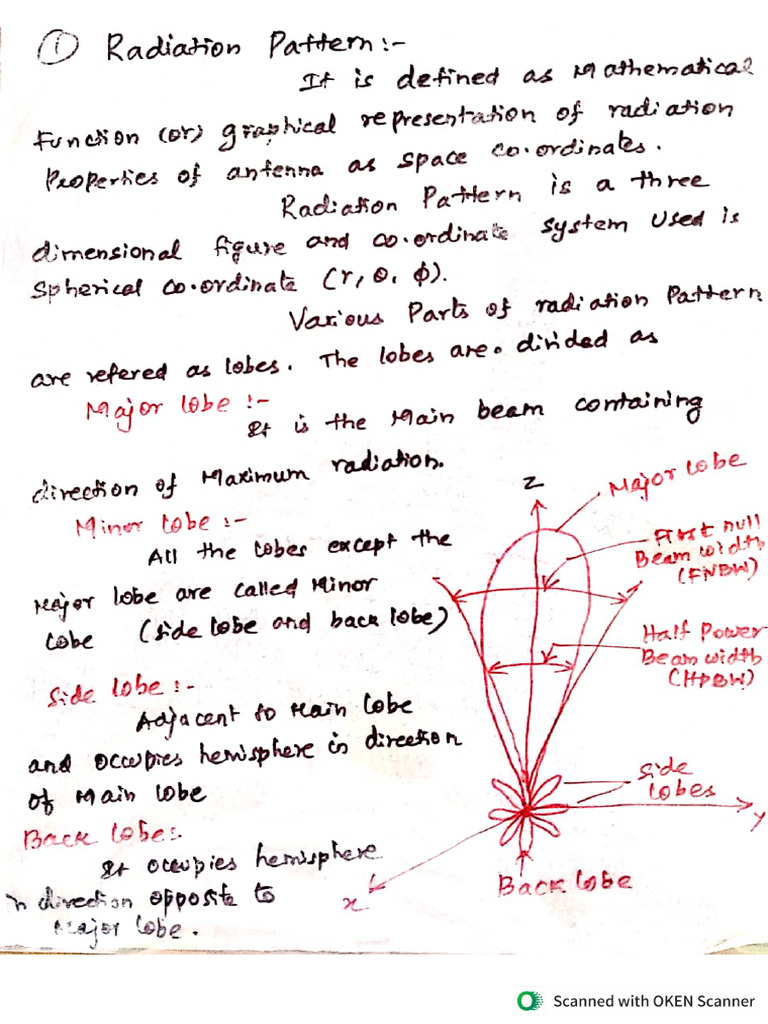 ① Radiation Pattern:-
It is defined as Mathematical
Function (or) graphical representation of radiation
Properties of antenna as space co-ordinates.
Radiation Pattern is a three
dimensional figure and co-ordinate system used is
spherical co-ordinate (r, θ, φ).
Various Parts of radiation Pattern
are refered as lobes. The lobes are divided as
Major lobe :-
It is the Main beam containing
direction of Maximum radiation.
Minor lobe :-
All the lobes except the
Major lobe are called Minor
lobe (side lobe and back lobe)
Side lobe :-
Adjacent to Main lobe
and occupies hemisphere in direction
of Main lobe
Back lobe:-
It occupies hemisphere
in direction opposite to
Major lobe.
Z
Major lobe
First null
Beam width
(FNBW)
Half Power
Beam width
(HPBW)
Side
lobes
y
x
Back lobe
Scanned with OKEN Scanner